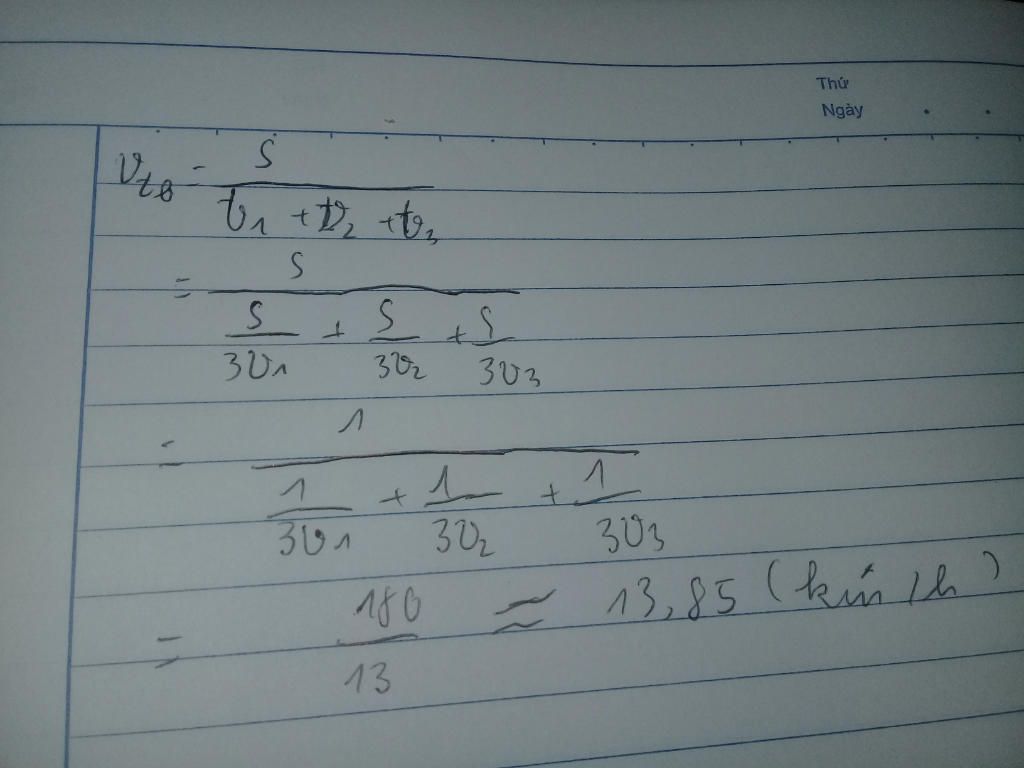 Thứ
Ngày
v_tb = S / (t_1 + t_2 + t_3)
= S / (S/3v_1 + S/3v_2 + S/3v_3)
= 1 / (1/3v_1 + 1/3v_2 + 1/3v_3)
= 180/13 ≈ 13,85 (km/h)